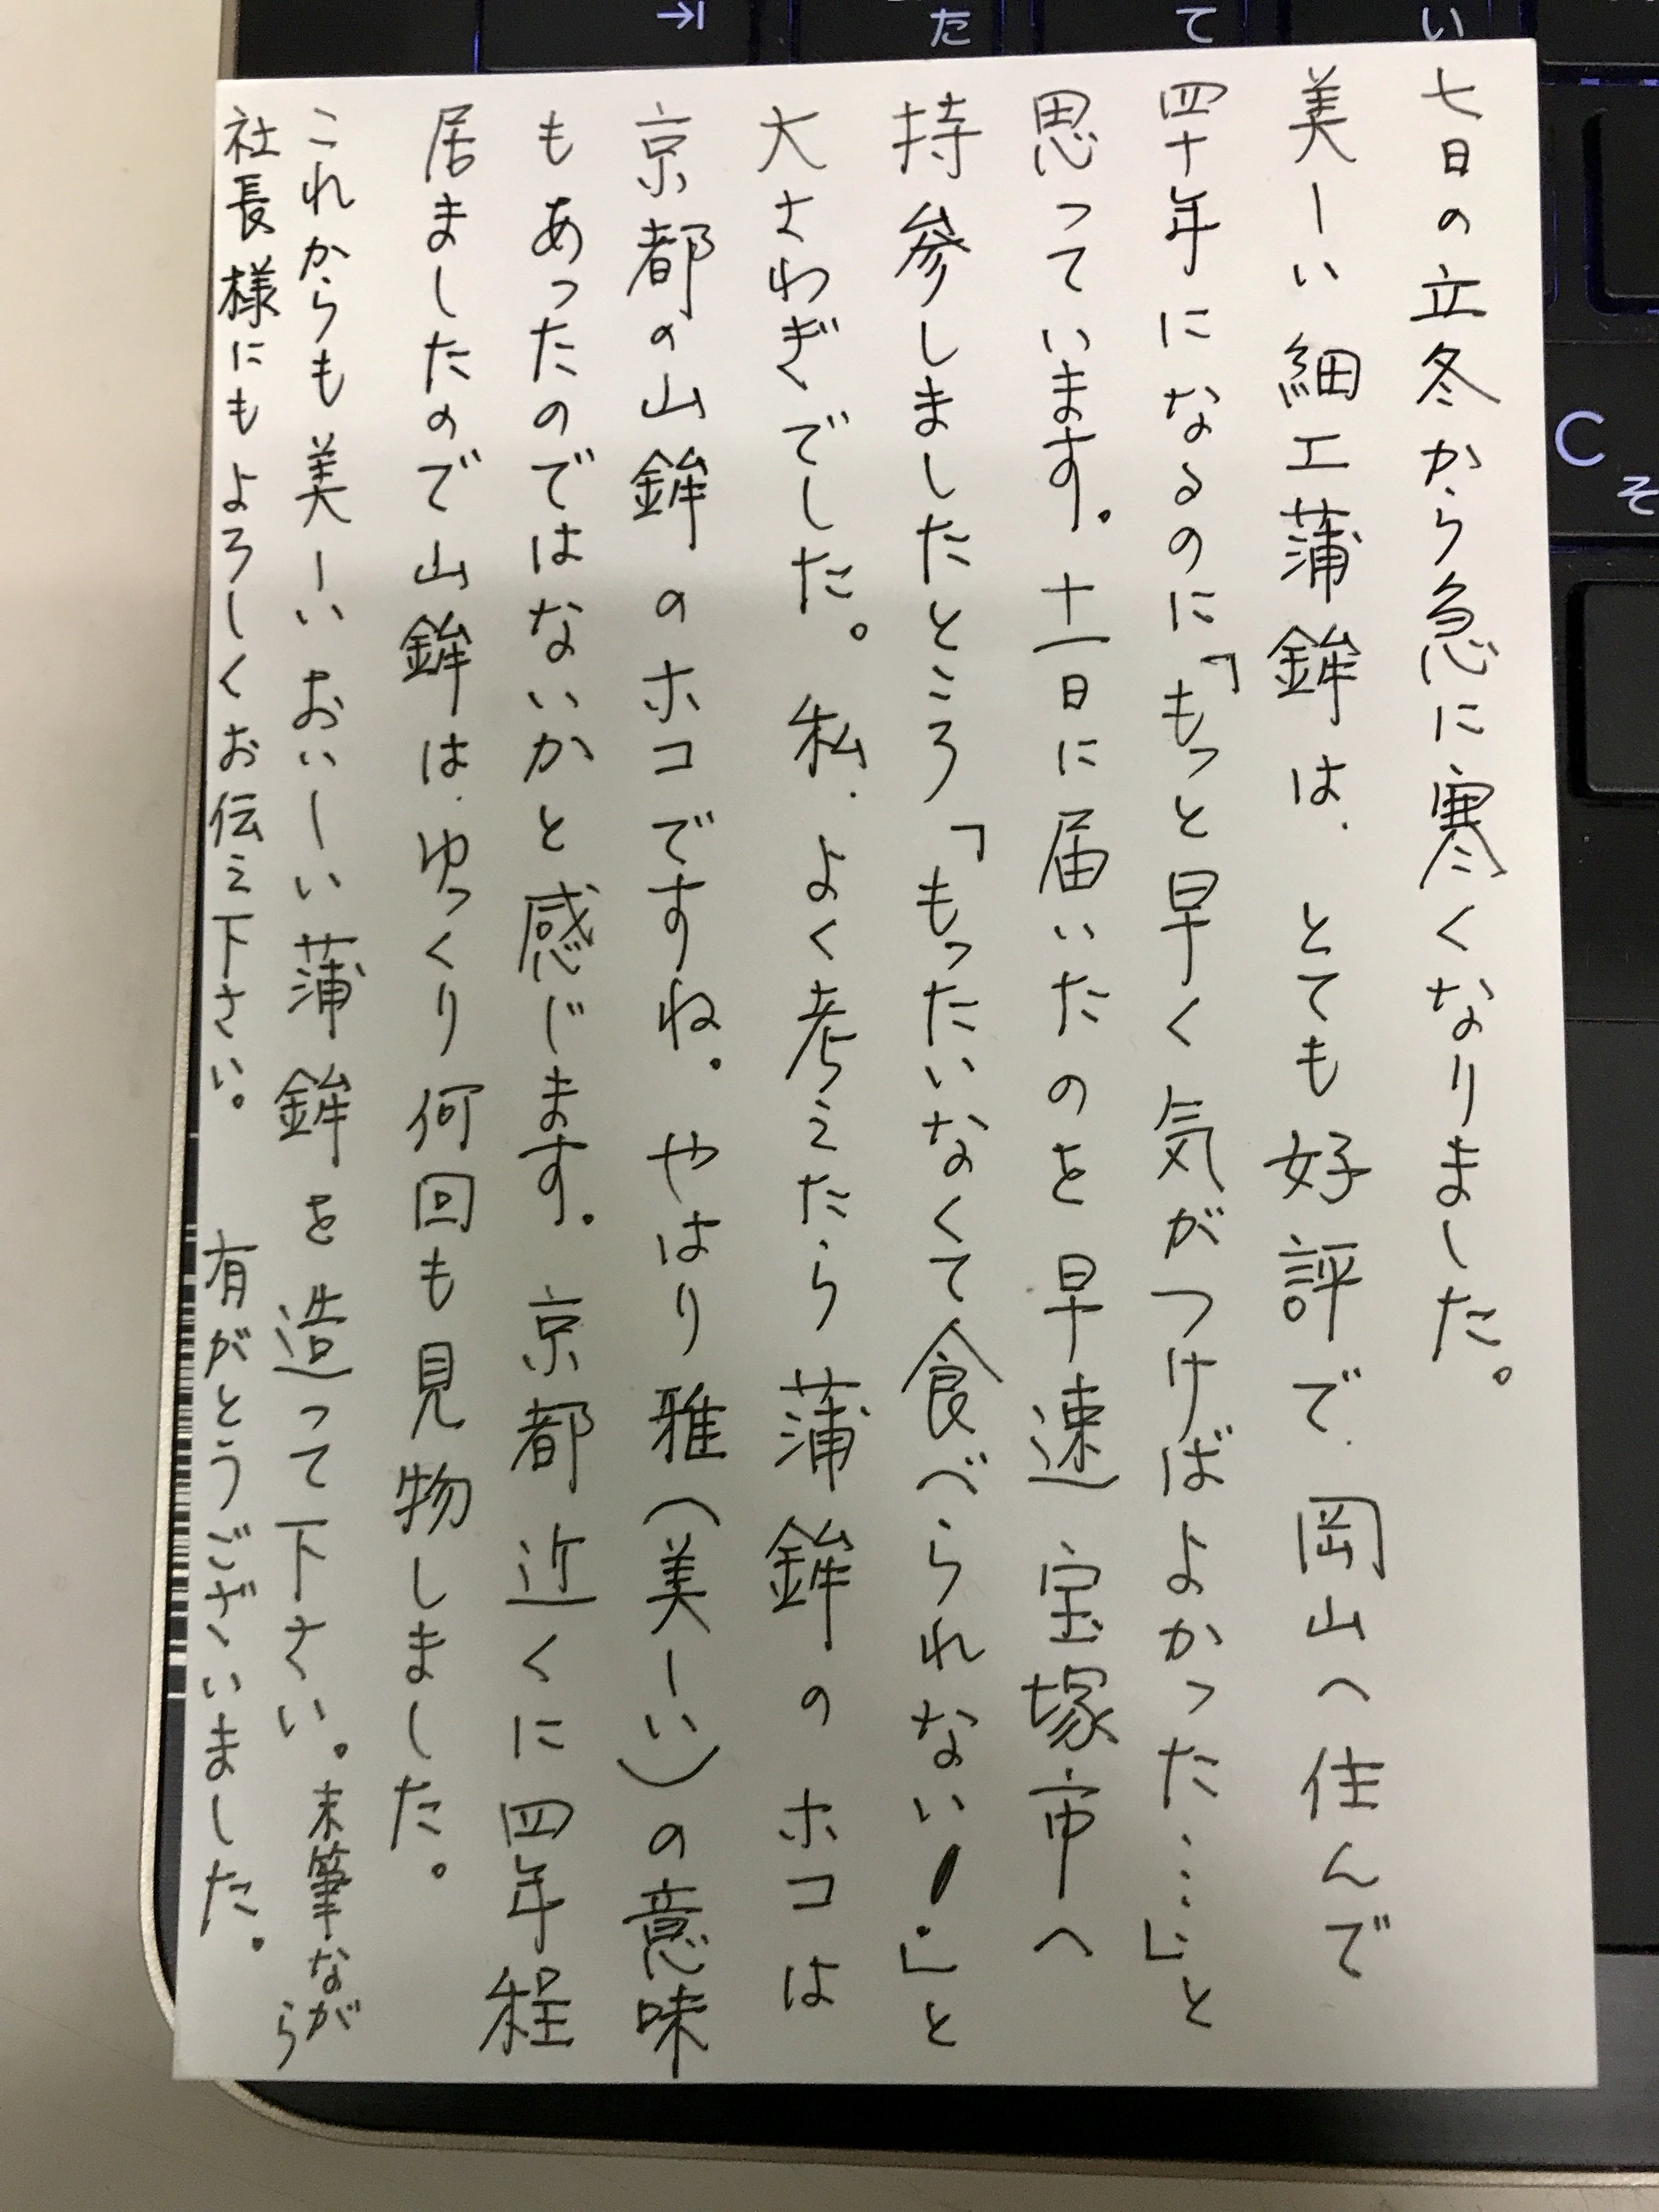 七日の立冬から急に寒くなりました。
美しい細工蒲鉾は、とても好評で、岡山へ住んで
四十年になるのに「もっと早く気がつけばよかった……」と
思っています。十一日に届いたのを早速宝塚市へ
持参しましたところ「もったいなくて食べられない！」と
大さわぎでした。私、よく考えたら蒲鉾のホコは
京都の山鉾のホコですね。やはり雅（美しい）の意味
もあったのではないかと感じます。京都近くに四年程
居ましたので山鉾は、ゆっくり何回も見物しました。
これからも美しいおいしい蒲鉾を造って下さい。末筆ながら
社長様にもよろしくお伝え下さい。　有がとうございました。
→|
た
て
い
C
そ